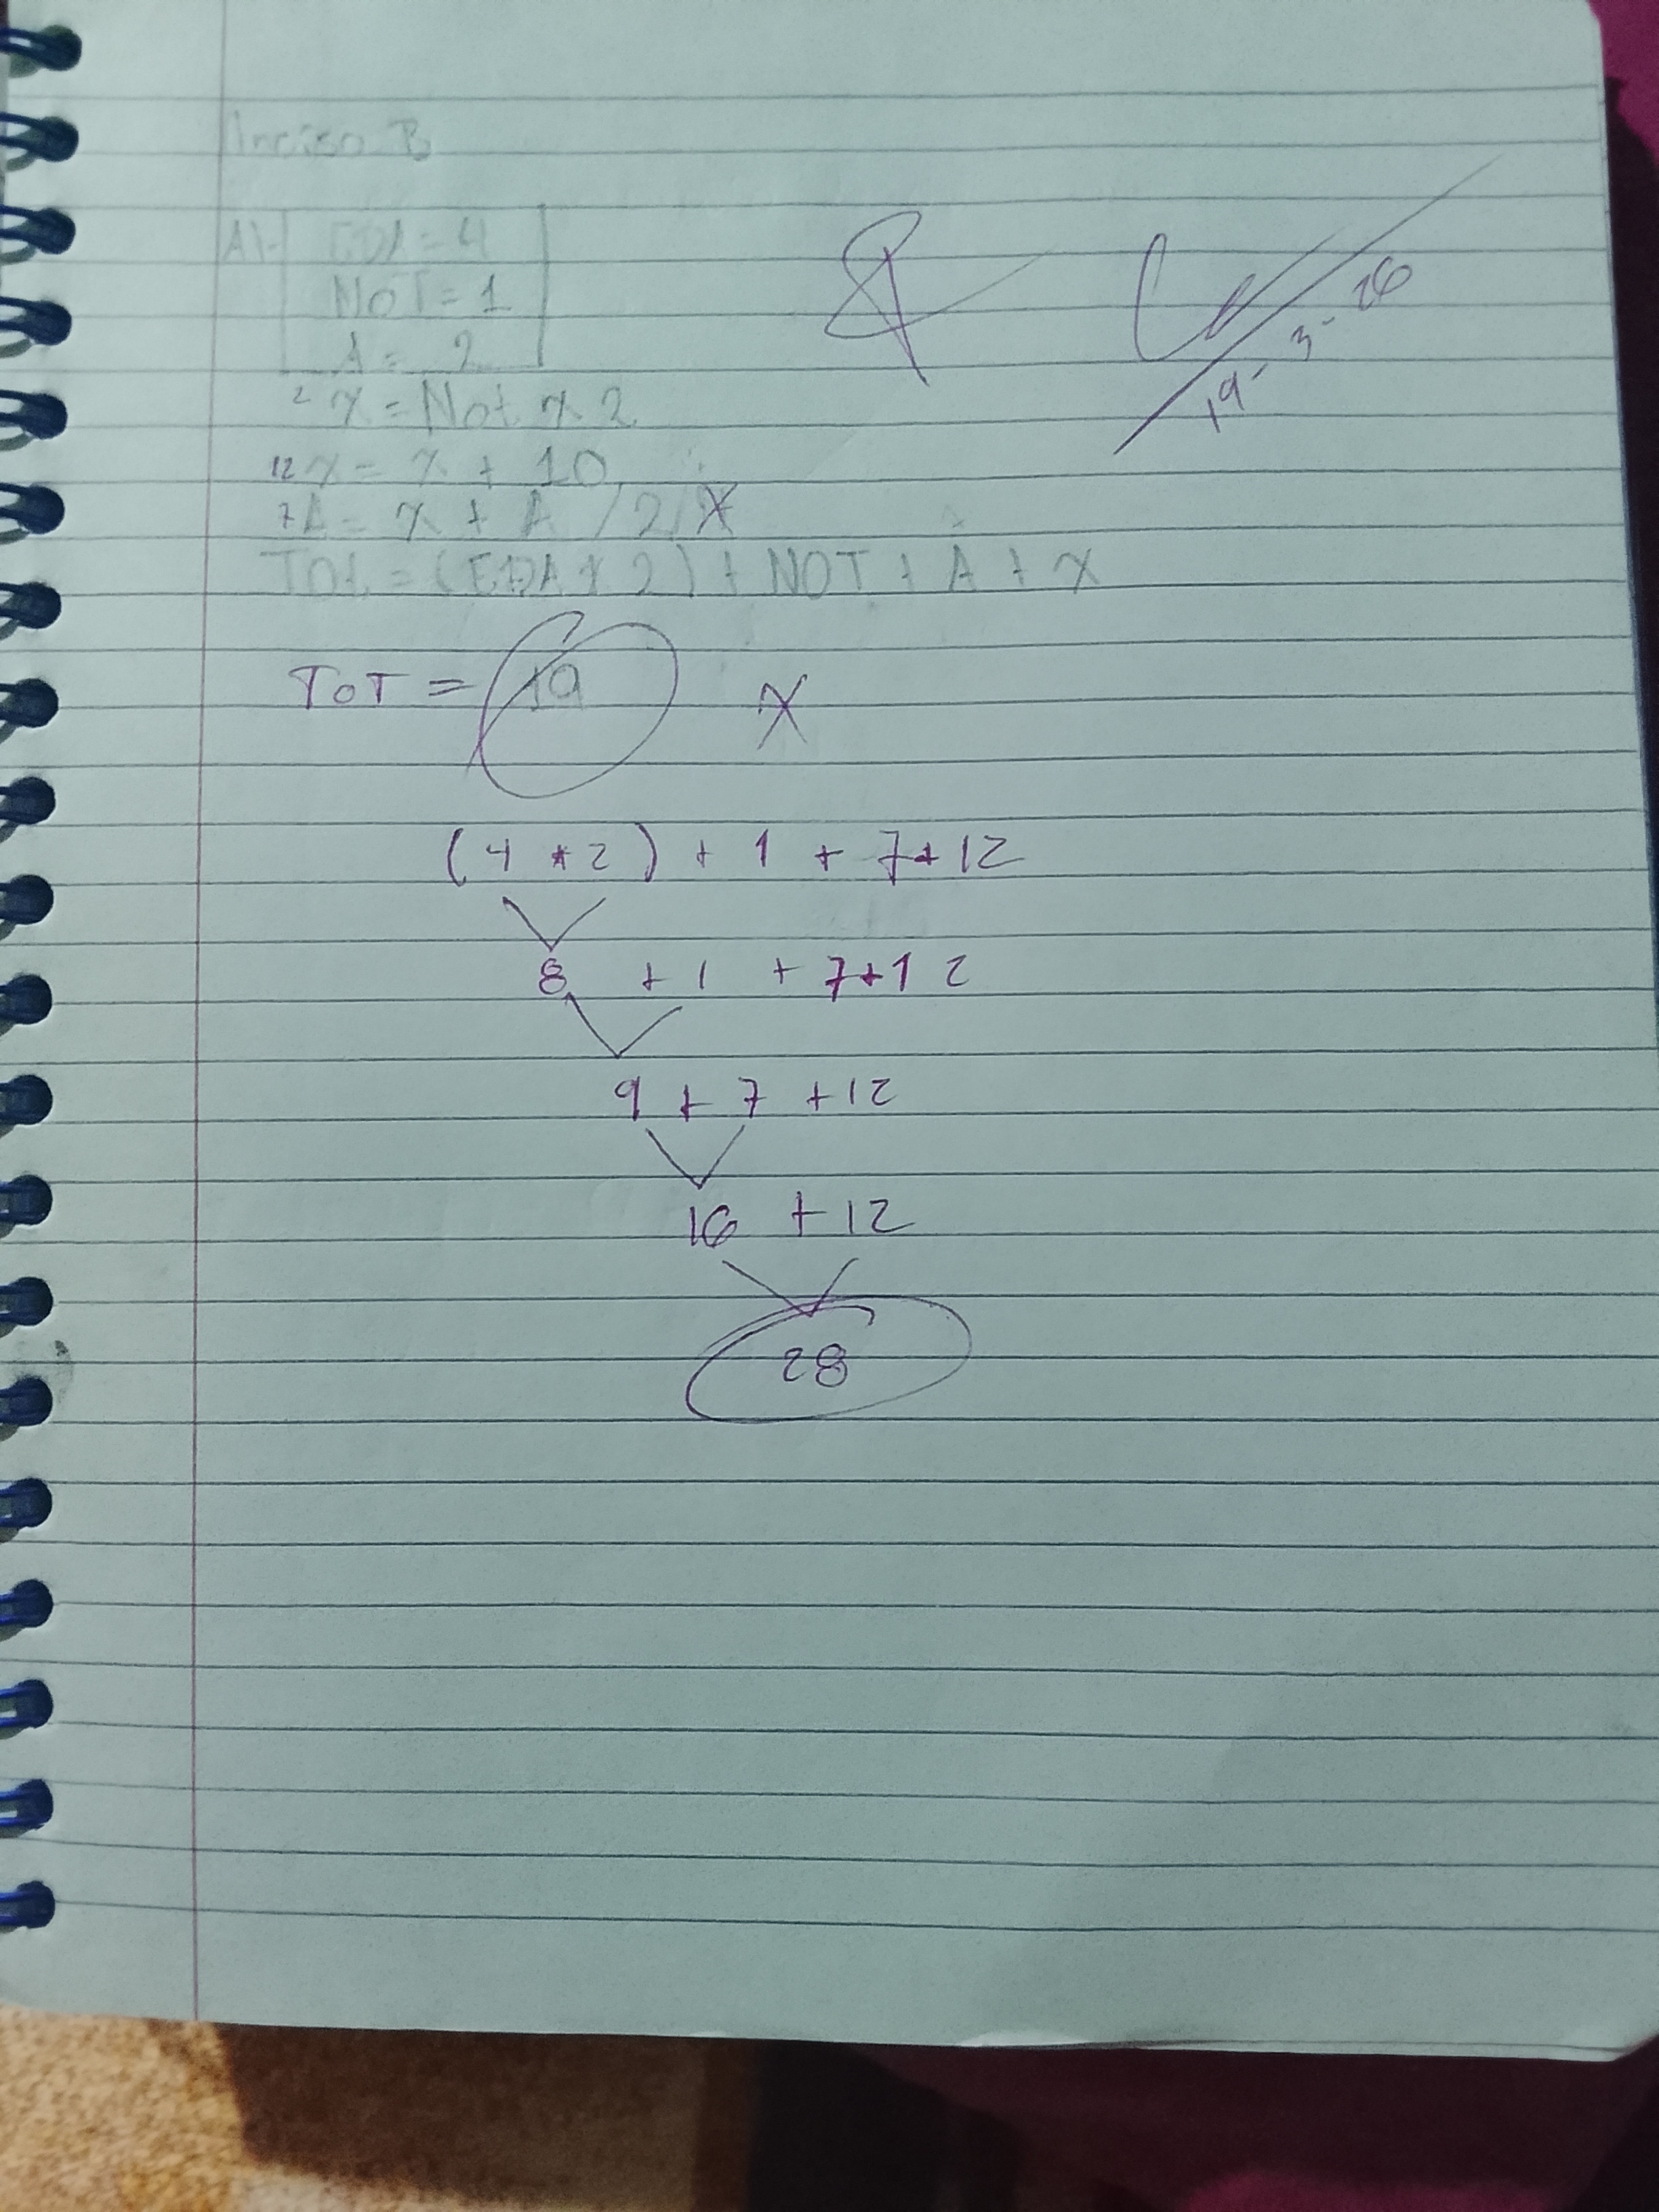 Inciso B
A)- EDA = 4
NOT = 1
A = 2
2 x = Not x 2
12 x = x + 10
7 A = x + A / 2 / X
TOt = (EDA * 2) + NOT + A + x
TOT = 19 X
(4 * 2) + 1 + 7 + 12
8 + 1 + 7 + 12
9 + 7 + 12
16 + 12
28
19 - 3 - 26